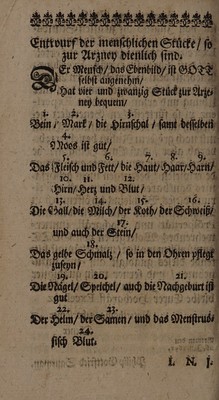 Entwurf der menschlichen Stücke / so
zur Artzney dienlich sind.
DEr Mensch / das Ebenbild / ist GOTT
selbst angenehm /
Hat vier und zwanzig Stück zur Artze-
ney bequem /
1. 2. 3.
Bein / Marck / die Hirnschal / samt desselben
4.
Moos ist gut /
5. 6. 7. 8. 9.
Das Fleisch und Fett / die Haut / Haar / Harn /
10. 11. 12.
Hirn / Hertz und Blut /
13. 14. 15. 16.
Die Gall / die Milch / der Koth / der Schweiß /
17.
und auch der Stein /
18.
Das gelbe Schmaltz / so in den Ohren pflegt
zuseyn /
19. 20. 21.
Die Nägel / Speichel / auch die Nachgeburt ist
gut
22. 23.
Der Helm / der Samen / und das Menstrua-
24.
sisch Blut.
I. N. J.